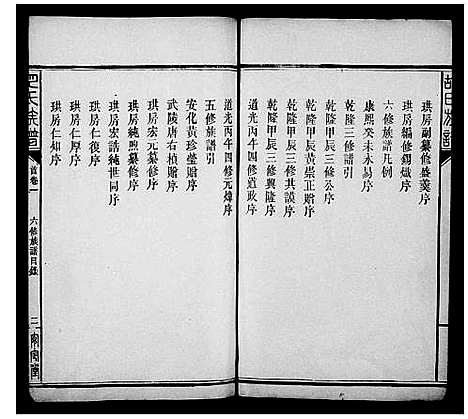 珙房副纂修盛蘷序
珙房編修錫熾序
六修族譜凡例
康熙癸未永易序
乾隆三修譜引
乾隆甲辰三修公序
乾隆甲辰黃崇正贈序
乾隆甲辰三修其謨序
乾隆甲辰三修興隆序
道光丙午四修道政序
道光丙午四修元煒序
五修族譜引
安化黃珍瑩贈序
武陵唐右楨贈序
珙房宏元纂修序
珙房純煦纂修序
珙房宏誥純世同序
珙房仁復序
珙房仁厚序
珙房仁知序
氏族譜
首卷一
六修族譜目錄
二